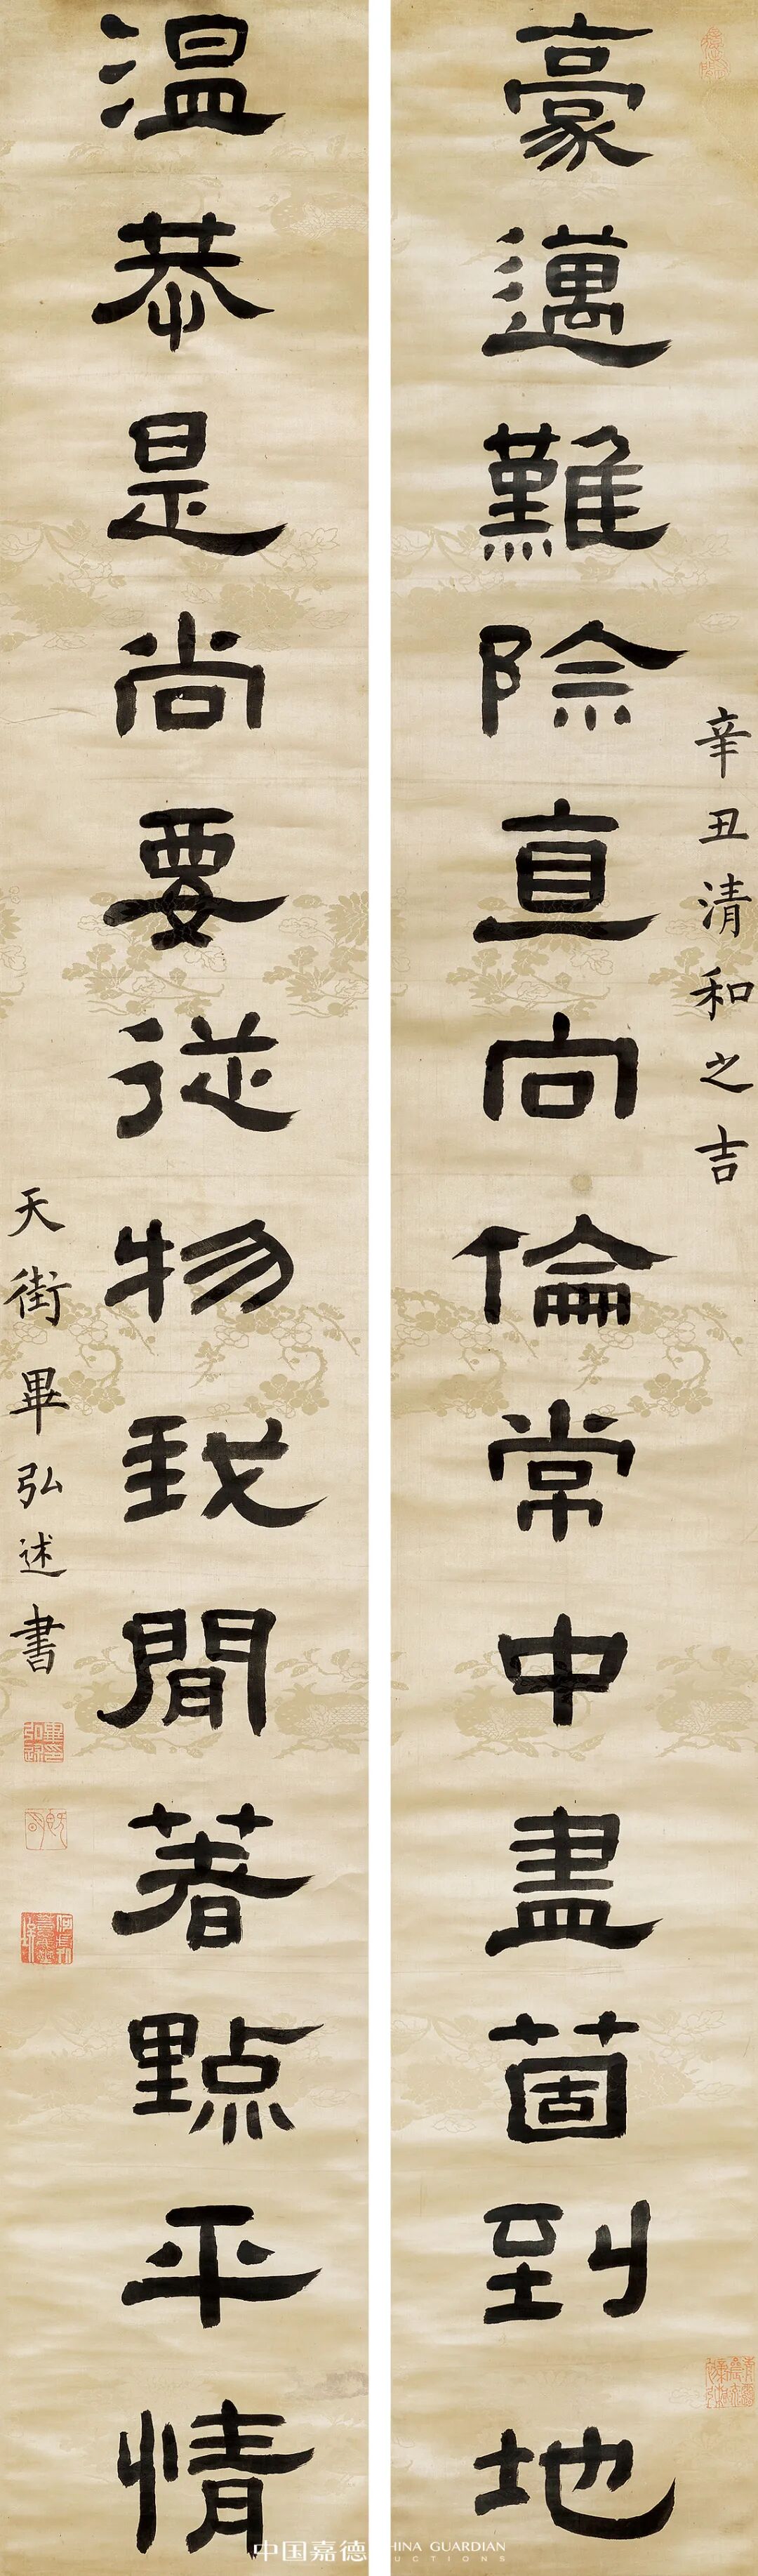 辛丑清和之吉
豪邁難除直向倫常中盡箇到地
溫恭是尚要從物我間著點平情
天街畢弘述書
中国嘉德
HINA GUARDIAN
UCTIONS